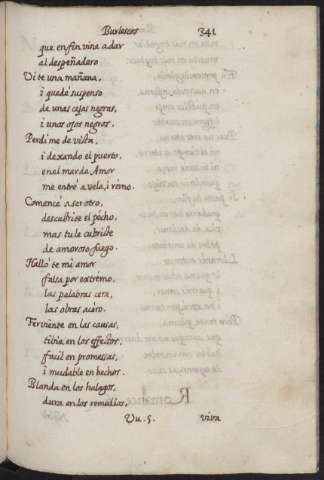 Burlescos 341
que en fin vine a dar
al despeñadero
Vite una mañana,
i quedè suspenso
de unas cejas negras,
i unos ojos negros.
Perdi me de vista,
i dexando el puerto,
en el mar de Amor
me entrè a vela, i remo.
Comencè a ser otro,
descubrite el pecho,
mas tu le cubriste
de amoroso fuego.
Hallò te mi amor
falsa por extremo,
las palabras cera,
las obras acero.
Ferviente en las causas,
tibia en los effectos,
facil en promessas,
i mudable en hechos.
Blanda en los halagos,
dura en los remedios,
Vu. 5. viva